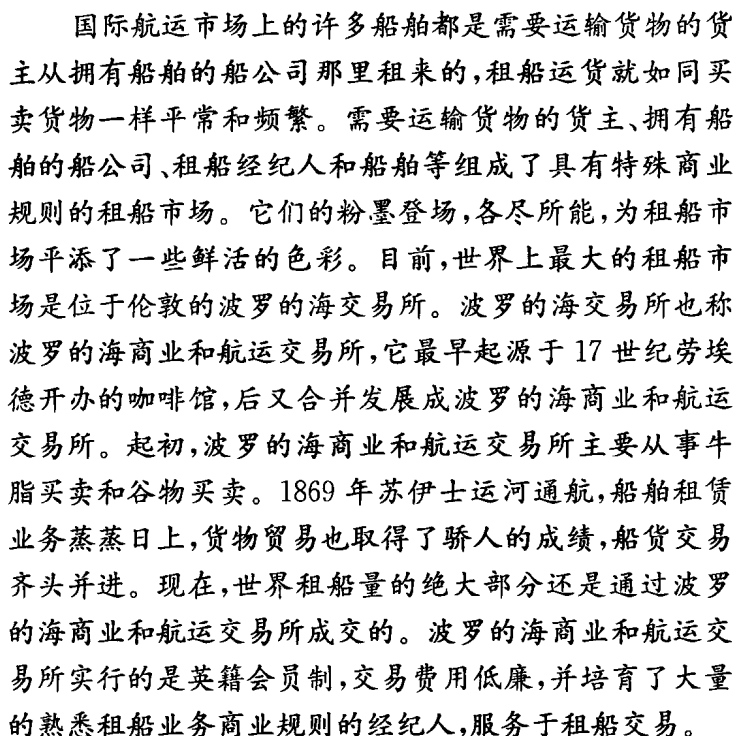 国际航运市场上的许多船舶都是需要运输货物的货
主从拥有船舶的船公司那里租来的,租船运货就如同买
卖货物一样平常和频繁。需要运输货物的货主、拥有船
舶的船公司、租船经纪人和船舶等组成了具有特殊商业
规则的租船市场。它们的粉墨登场,各尽所能,为租船市
场平添了一些鲜活的色彩。目前,世界上最大的租船市
场是位于伦敦的波罗的海交易所。波罗的海交易所也称
波罗的海商业和航运交易所,它最早起源于 17 世纪劳埃
德开办的咖啡馆,后又合并发展成波罗的海商业和航运
交易所。起初,波罗的海商业和航运交易所主要从事牛
脂买卖和谷物买卖。1869 年苏伊士运河通航,船舶租赁
业务蒸蒸日上,货物贸易也取得了骄人的成绩,船货交易
齐头并进。现在,世界租船量的绝大部分还是通过波罗
的海商业和航运交易所成交的。波罗的海商业和航运交
易所实行的是英籍会员制,交易费用低廉,并培育了大量
的熟悉租船业务商业规则的经纪人,服务于租船交易。